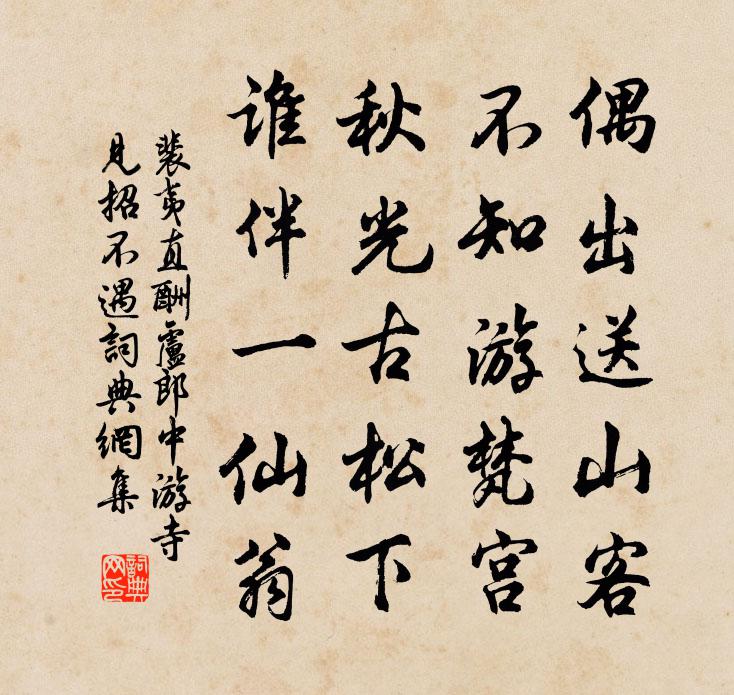 偶出送山客
不知游梵宫
秋光古松下
谁伴一仙翁
裴夷直酬盧郎中游寺
見招不遇詞典網集
詞典网印